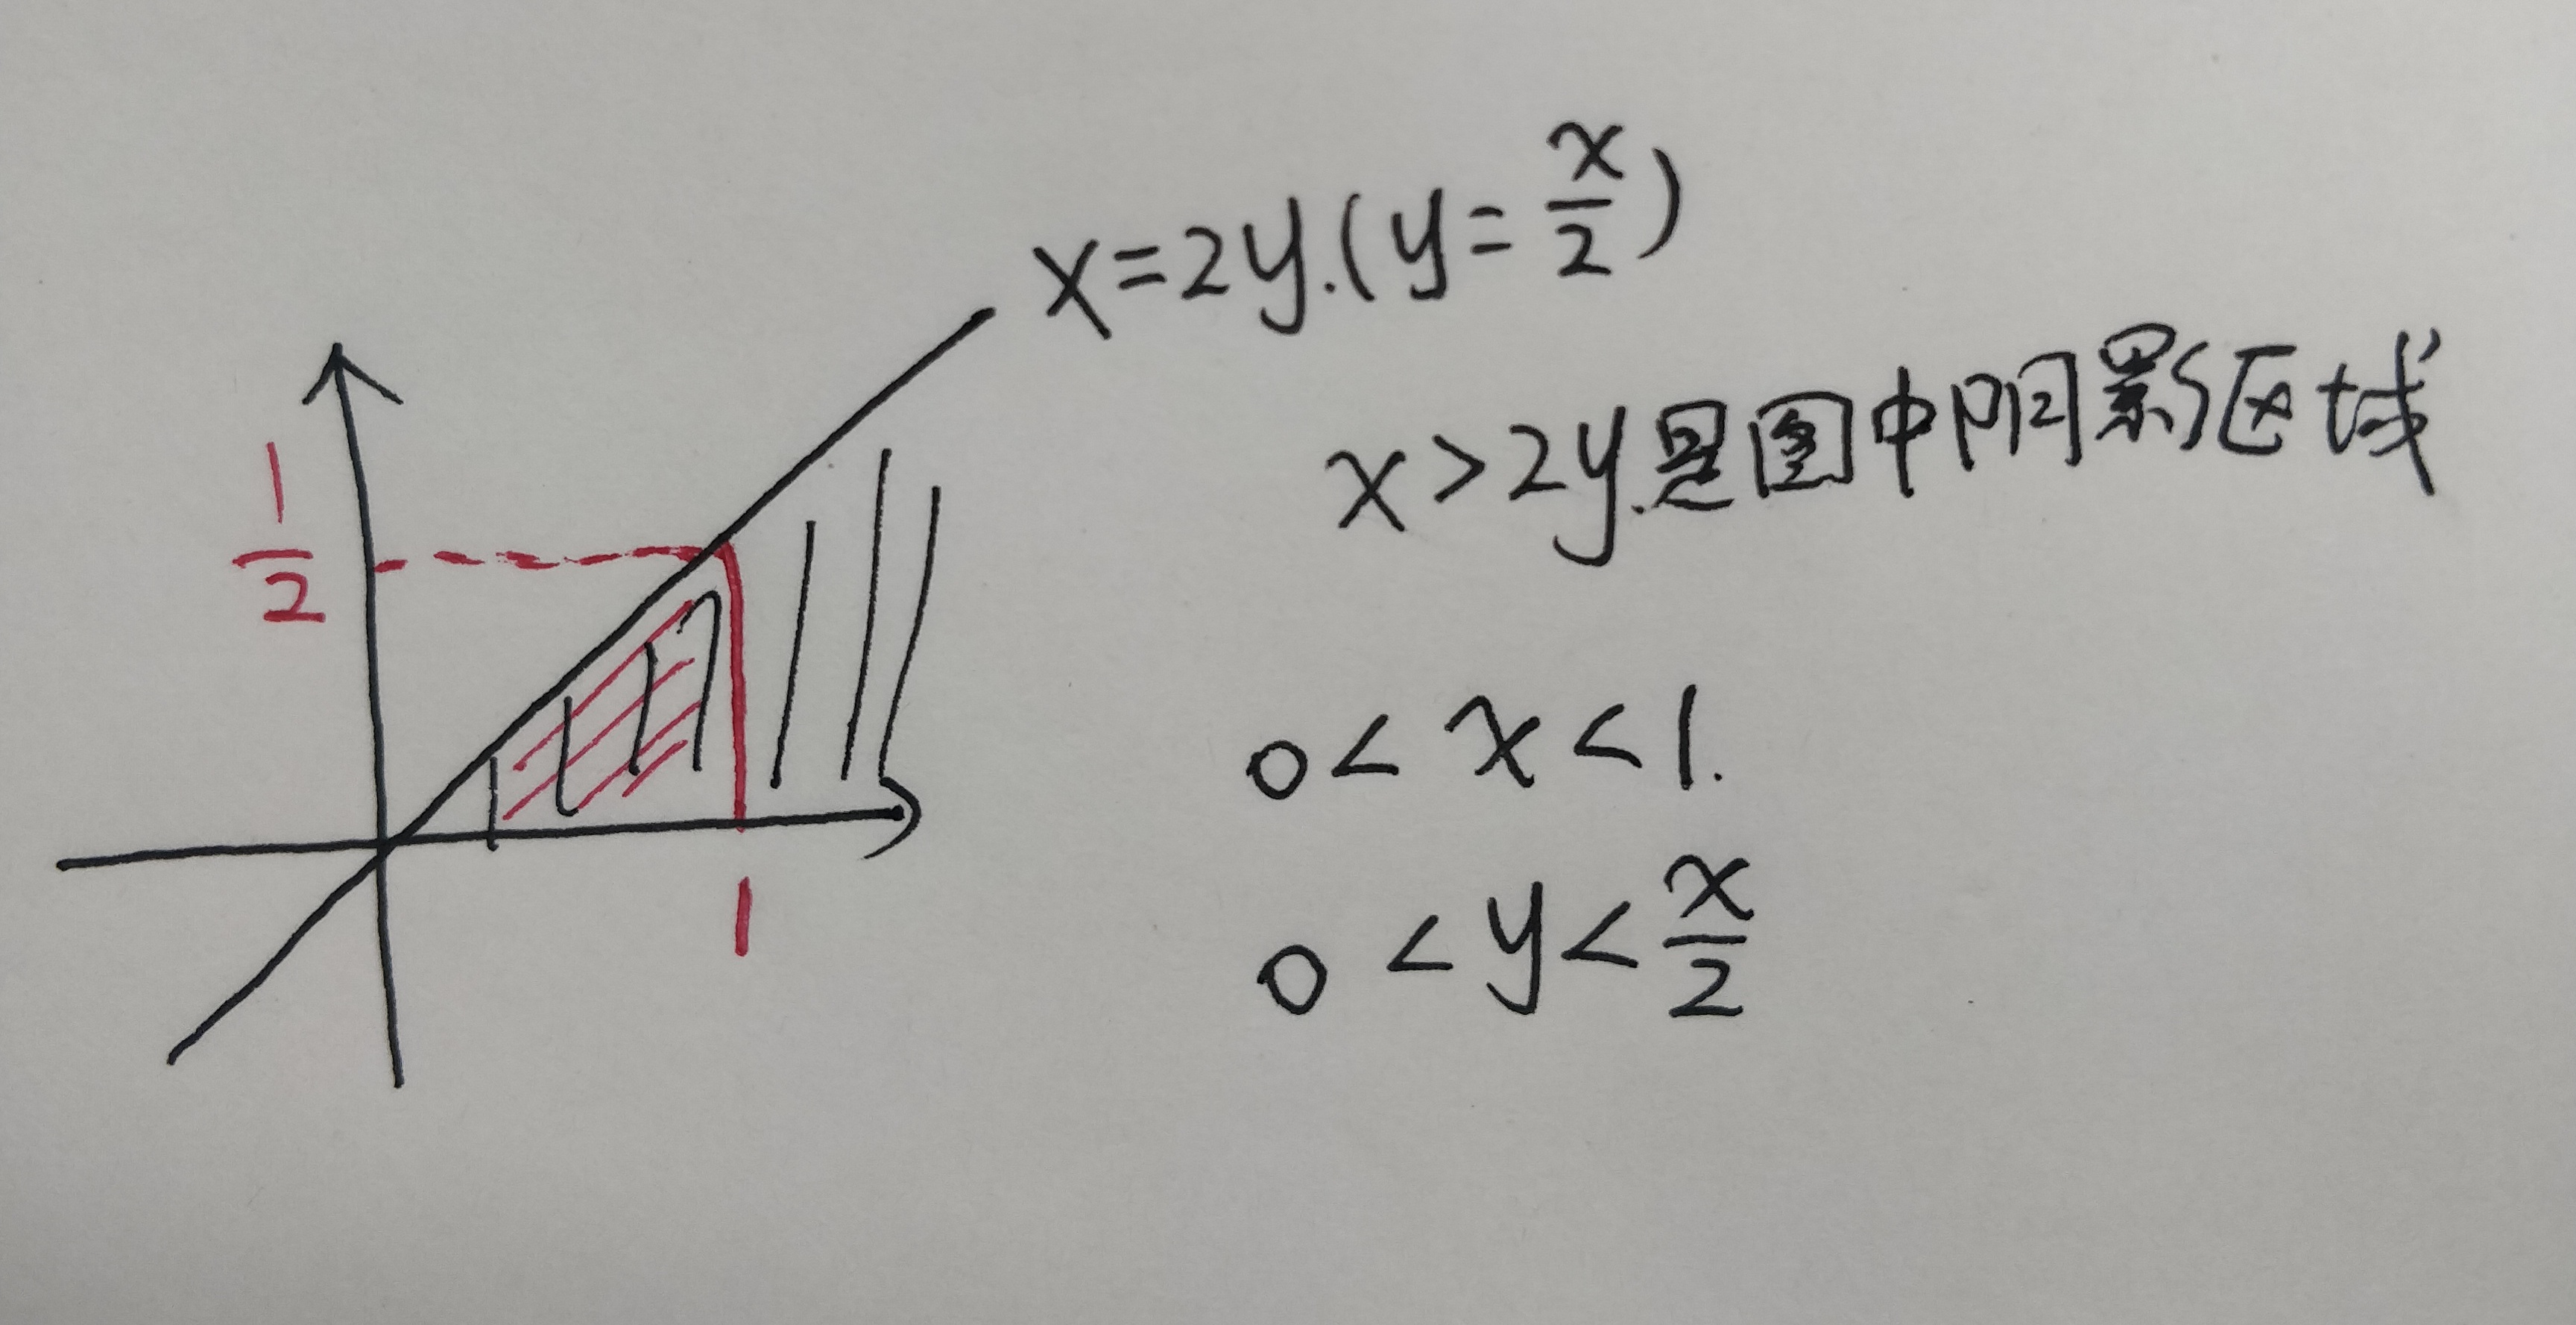 x=2y.(y=x/2)
x>2y.是图中阴影区域
1/2
0<x<1.
0<y<x/2
1